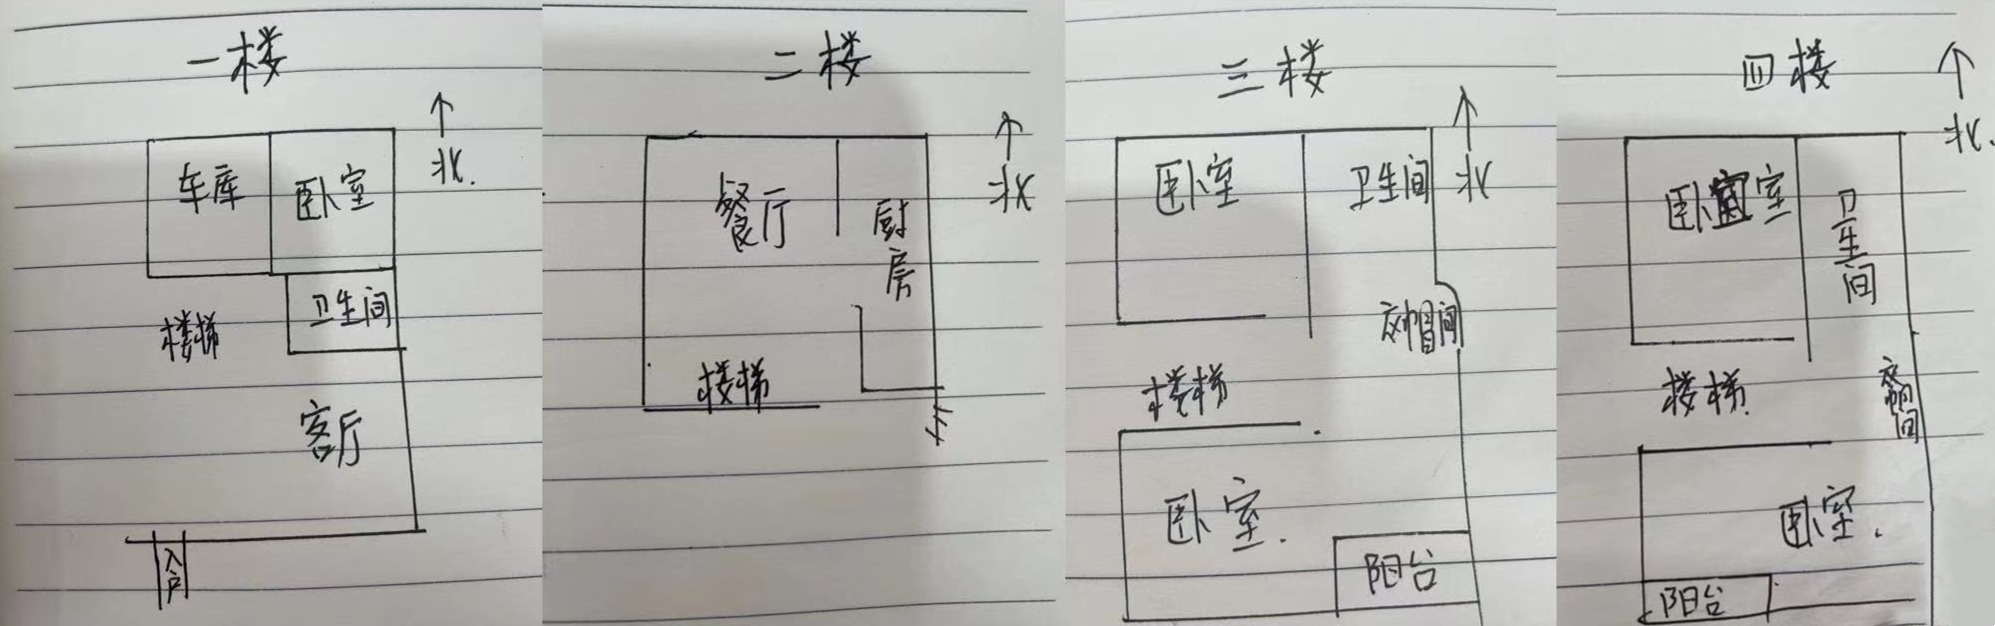 一楼
北
车库
卧室
卫生间
楼梯
客厅
入户
二楼
北
餐厅
厨房
楼梯
三楼
北
卧室
卫生间
衣帽间
楼梯
卧室.
阳台
四楼
北.
卧室
卫生间
楼梯.
衣帽间
卧室.
阳台